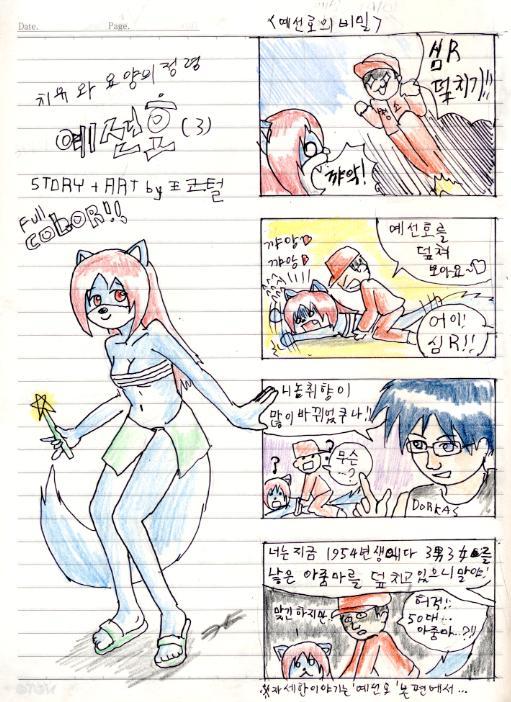 Date.
Page.
치유와 요양의 정령
예선호 (3)
STORY + ART by 표코털
Full
COLOR!!
<예선호의 비밀>
심R
덮치기!!
청소
꺄악!
예선호를
덮쳐
보아요~♡
꺄앙♥
꺄앙♥
어이!
심R!!
니놈취향이
많이 바뀌었구나!!
무슨
…?
?
?
DORKAS
너는 지금 1954년생에다 3男3女를
낳은 아줌마를 덮치고 있으니말야!
맞긴하지만
허걱!!
50대…
아줌마…?!!
※자세한이야기는 '예선호' 본편에서…